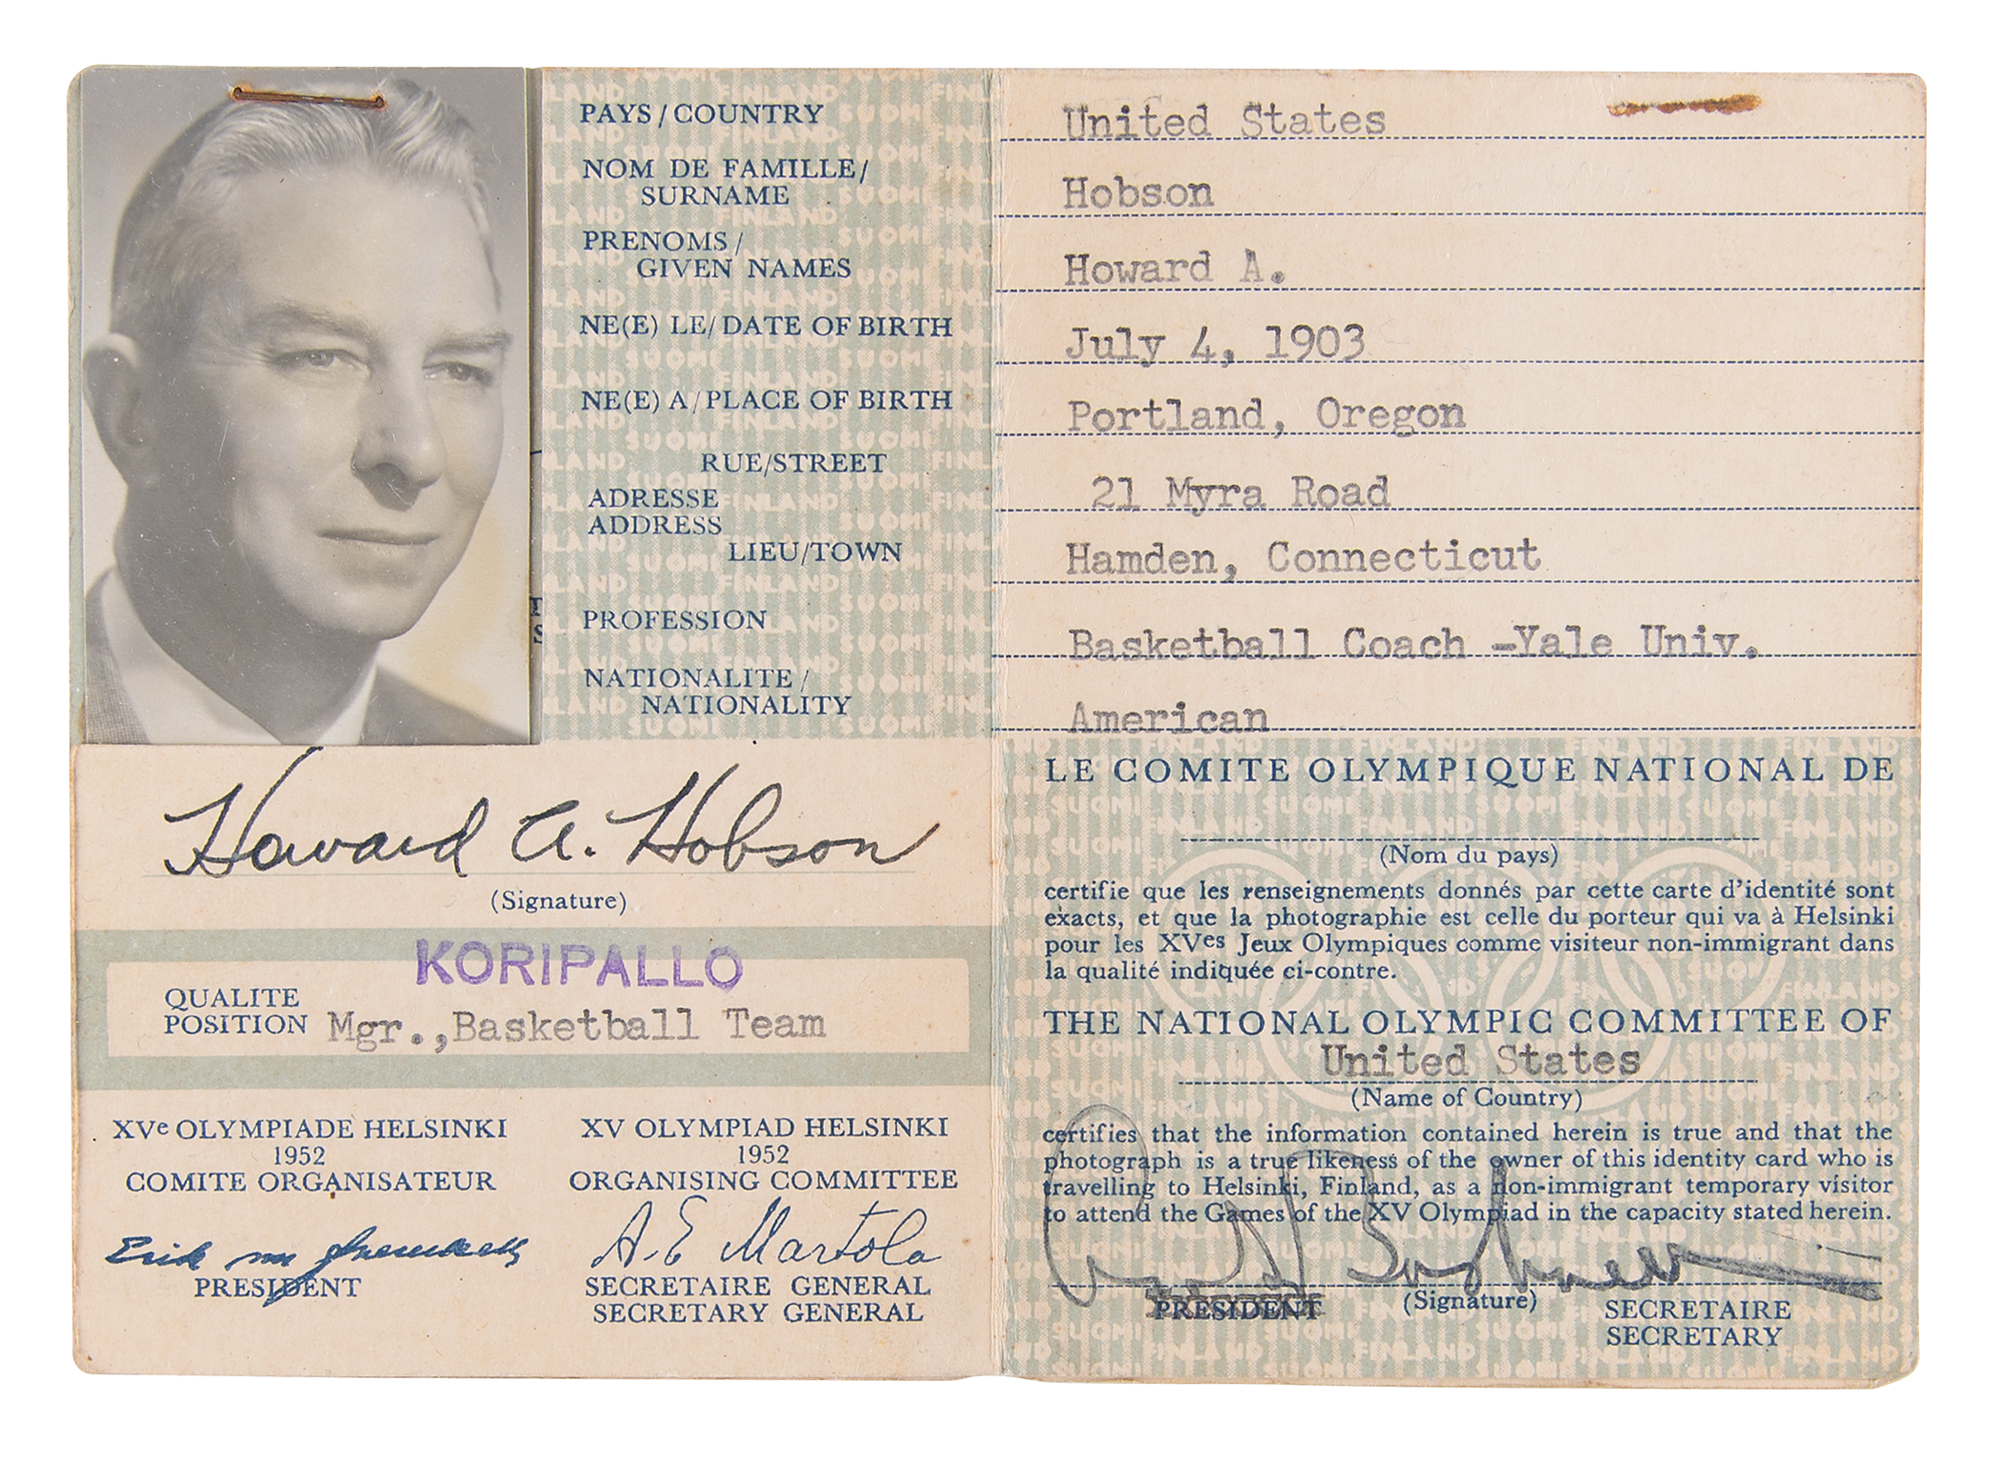 PAYS / COUNTRY United States
NOM DE FAMILLE/
SURNAME Hobson
PRENOMS /
GIVEN NAMES Howard A.
NE(E) LE/ DATE OF BIRTH July 4, 1903
NE(E) A / PLACE OF BIRTH Portland, Oregon
RUE/STREET 21 Myra Road
ADRESSE
ADDRESS
LIEU/TOWN Hamden, Connecticut
PROFESSION Basketball Coach -Yale Univ.
NATIONALITE /
NATIONALITY American
Howard A. Hobson
(Signature)
KORIPALLO
QUALITE
POSITION Mgr.,Basketball Team
XVe OLYMPIADE HELSINKI
1952
COMITE ORGANISATEUR
PRESIDENT
XV OLYMPIAD HELSINKI
1952
ORGANISING COMMITTEE
A.E Martola
SECRETAIRE GENERAL
SECRETARY GENERAL
LE COMITE OLYMPIQUE NATIONAL DE
(Nom du pays)
certifie que les renseignements donnés par cette carte d'identité sont
exacts, et que la photographie est celle du porteur qui va à Helsinki
pour les XVes Jeux Olympiques comme visiteur non-immigrant dans
la qualité indiquée ci-contre.
THE NATIONAL OLYMPIC COMMITTEE OF
United States
(Name of Country)
certifies that the information contained herein is true and that the
photograph is a true likeness of the owner of this identity card who is
travelling to Helsinki, Finland, as a non-immigrant temporary visitor
to attend the Games of the XV Olympiad in the capacity stated herein.
PRESIDENT (Signature) SECRETAIRE
SECRETARY